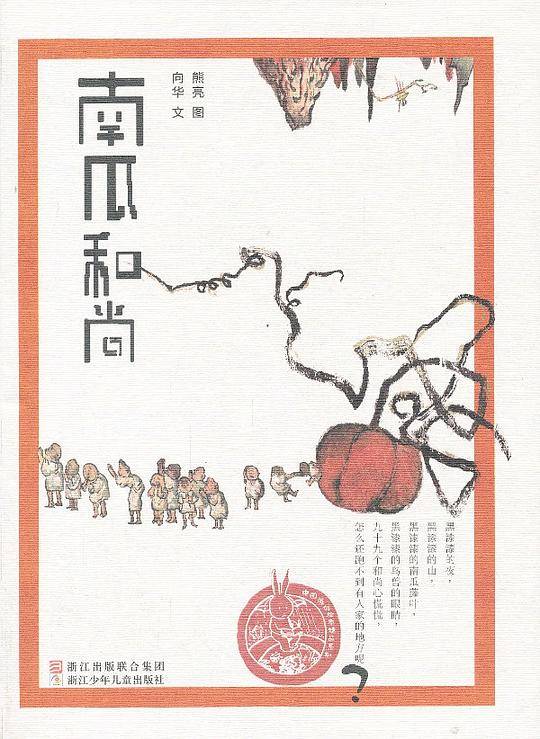 南瓜和尚
熊亮 图
向华 文
黑漆漆的夜，
黑漆漆的山，
黑漆漆的南瓜藤叶，
黑漆漆的鸟兽的眼睛，
九十九个和尚心慌慌，
怎么还跑不到有人家的地方呢
？
浙江出版联合集团
浙江少年儿童出版社